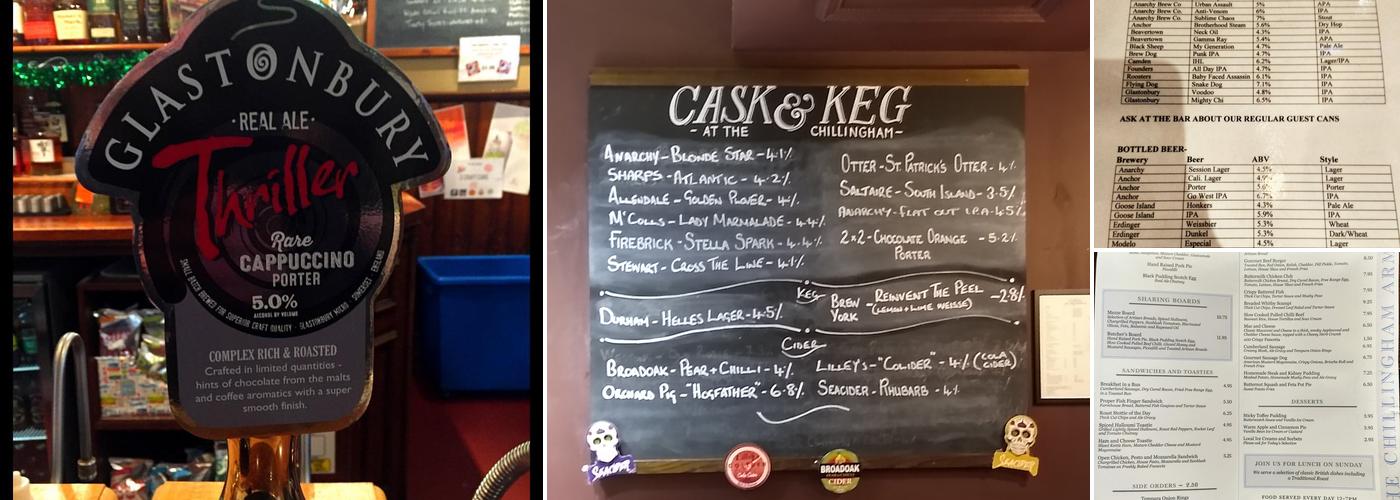 GLASTONBURY
·REAL ALE·
Thriller
Rare
CAPPUCCINO
PORTER
5.0%
ALCOHOL BY VOLUME
SMALL BATCH BREWED FOR SUPERIOR CRAFT QUALITY · GLASTONBURY MICRO SOMERSET ENGLAND
COMPLEX RICH & ROASTED
Crafted in limited quantities -
hints of chocolate from the malts
and coffee aromatics with a super
smooth finish.
CASK & KEG
- AT THE CHILLINGHAM-
ANARCHY-BLONDE STAR-4.1%
SHARPS-ATLANTIC-4.2%
ALLENDALE-GOLDEN PLOVER-4%
McCOLLS-LADY MARMALADE-4.4%
FIREBRICK-STELLA SPARK-4.4%
STEWART-CROSS THE LINE-4.1%
OTTER-ST PATRICK'S OTTER-4.%
SALTAIRE-SOUTH ISLAND-3.5%
ANARCHY-FLAT OUT IPA-4.5%
2x2-CHOCOLATE ORANGE -5.2%
PORTER
KEG
DURHAM-HELLES LAGER-4.5%
BREW YORK -REINVENT THE PEEL -2.8%
(LEMON+LIME WEISSE)
CIDER
BROADOAK-PEAR+CHILLI-4.%
ORCHARD PIG-"HOGFATHER"-6.8%
LILLEY'S-"COLIDER"-4% (COLA CIDER)
SEACIDER-RHUBARB-4.%
SEACIDER
BROADOAK
CIDER
SEACIDER
Anarchy Brew Co Urban Assault 5% APA
Anarchy Brew Co Anti-Venom 6% IPA
Anarchy Brew Co Sublime Chaos 7% Stout
Anchor Brotherhood Steam 5.6% Dry Hop
Beavertown Neck Oil 4.3% IPA
Beavertown Gamma Ray 5.4% APA
Black Sheep My Generation 4.7% Pale Ale
Brew Dog Punk IPA 4.7% IPA
Camden IHL 6.2% Lager/IPA
Founders All Day IPA 4.7% IPA
Roosters Baby Faced Assassin 6.1% IPA
Flying Dog Snake Dog 7.1% IPA
Glastonbury Voodoo 4.8% IPA
Glastonbury Mighty Chi 6.5% IPA
ASK AT THE BAR ABOUT OUR REGULAR GUEST CANS
BOTTLED BEER-
Brewery Beer ABV Style
Anarchy Session Lager 4.5% Lager
Anchor Cali. Lager 4.9% Lager
Anchor Porter 5.6% Porter
Anchor Go West IPA 6.7% IPA
Goose Island Honkers 4.3% Pale Ale
Goose Island IPA 5.9% IPA
Erdinger Weissbier 5.3% Wheat
Erdinger Dunkel 5.3% Dark/Wheat
Modelo Especial 4.5% Lager
Hand Raised Pork Pie
Piccalilli
Black Pudding Scotch Egg
SHARING BOARDS
Butcher's Board 11.95
SANDWICHES AND TOASTIES
Breakfast in a Bun 4.95
Proper Fish Finger Sandwich 5.50
Roast Stottie of the Day 6.25
Spiced Halloumi Toastie 4.95
Ham and Cheese Toastie 4.95
Open Chicken, Pesto and Mozzarella Sandwich 5.25
SIDE ORDERS – 2.50
Tempura Onion Rings
Gourmet Beef Burger 8.50
Buttermilk Chicken Club 7.95
Crispy Battered Fish 7.95
Breaded Whitby Scampi 9.25
Slow Cooked Pulled Chilli Beef 7.95
Mac and Cheese 6.50
Cumberland Sausage 6.95
Sausage Hot Dog
Homemade Steak and Ale Pie 7.25
Butternut Squash and Feta Pot Pie 6.50
DESSERTS
Sticky Toffee Pudding 3.95
Warm Apple and Cinnamon Pie 3.95
Local Ice Creams and Sorbets 2.95
JOIN US FOR LUNCH ON SUNDAY
We serve a selection of classic British dishes including
a Traditional Roast
FOOD SERVED EVERY DAY 12-7PM
THE CHILLINGHAM ARMS